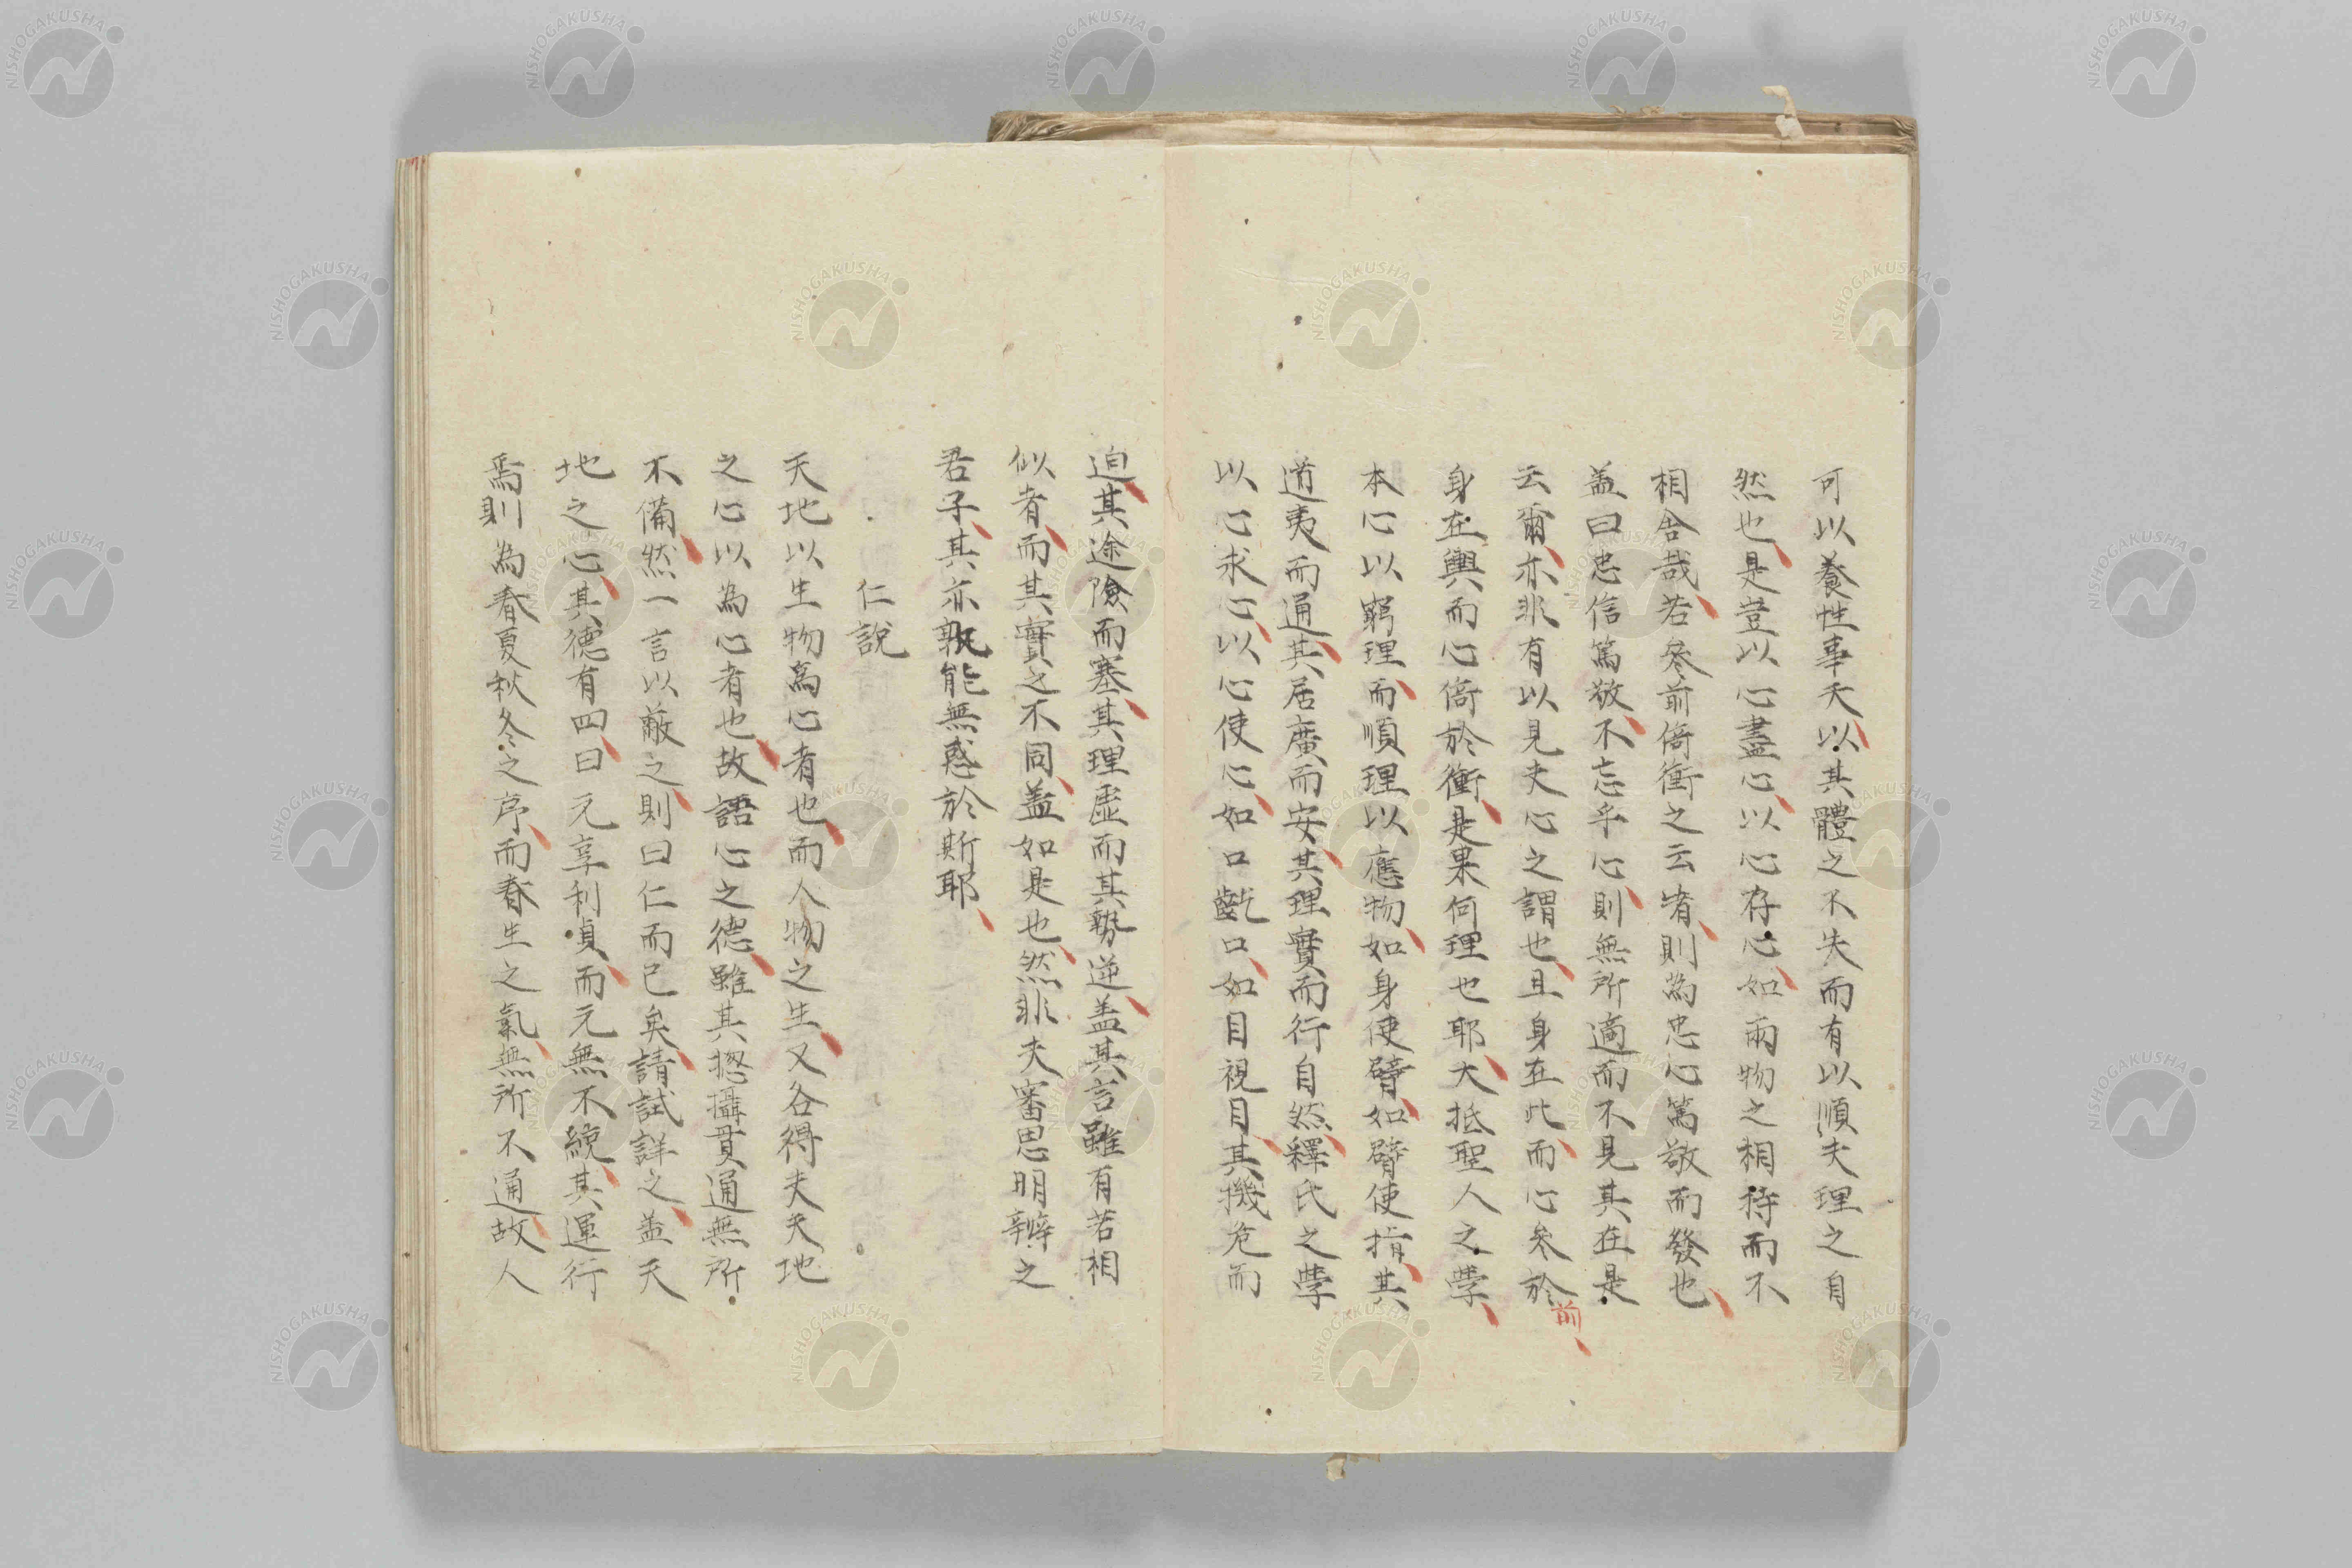 可以養性事天以其體之不失而有以順夫理之自
然也是豈以心盡心以心存心如兩物之相持而不
相舍哉若參前倚衡之云者則為忠心篤敬而發也
蓋曰忠信篤敬不忘乎心則無所適而不見其在是
云爾亦非有以見夫心之謂也且身在此而心參於前
身在輿而心倚於衡是果何理也耶大抵聖人之學
本心以窮理而順理以應物如身使臂如臂使指其
道夷而通其居廣而安其理實而行自然釋氏之學
以心求心以心使心如口齕口如目視目其機危而
迫其途險而塞其理虛而其勢逆蓋其言雖有若相
似者而其實之不同蓋如是也然非夫審思明辨之
君子其亦孰能無惑於斯耶
仁說
天地以生物為心者也而人物之生又各得夫天地
之心以為心者也故語心之德雖其揔攝貫通無所
不備然一言以蔽之則曰仁而已矣請試詳之蓋天
地之心其德有四曰元亨利貞而元無不統其運行
焉則為春夏秋冬之序而春生之氣無所不通故人
NISHOGAKUSHA